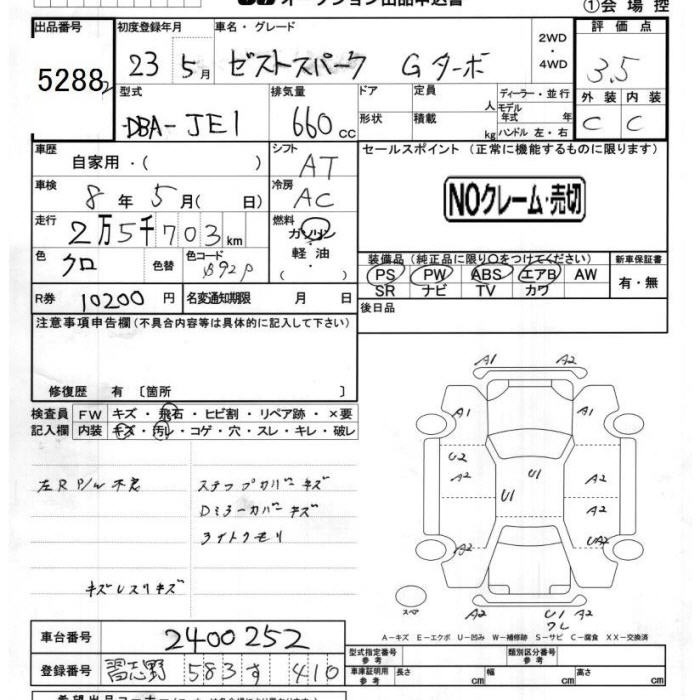 オークション出品申込書 ①会場控
出品番号 初度登録年月 車名・グレード 2WD・4WD 評価点
5288 23年5月 ゼストスパーク Gターボ 3.5
型式 排気量 ドア 定員 人 ディーラー・並行 外装 内装
DBA-JE1 660cc 形状 積載 kg モデル年式 年 ハンドル 左・右 C C
車歴 自家用・( ) シフト AT セールスポイント (正常に機能するものに限ります)
車検 8年5月( 日) 冷房 AC NOクレーム・売切
走行 2万5千703km 燃料 ガソリン
色 クロ 色替 色コード B92P 軽油 ・( ) 装備品 (純正品に限り○をつけてください) 新車保証書
PS PW ABS エアB AW 有・無
SR ナビ TV カワ
R券 10200円 名変通知期限 月 日 後日品
注意事項申告欄 (不具合内容等は具体的に記入して下さい)
修復歴 有 〔箇所 〕
検査員 FW キズ・飛石・ヒビ割・リペア跡・×要
記入欄 内装 キズ・汚レ・コゲ・穴・スレ・キレ・破レ
左R P/W不良 ステップカバーキズ
Dミラーカバーキズ
ライトクモリ
キズ レスリキズ
A1 A2
A1 A1
U2 U1
A2 A2
U1 A2
A2 UA2
スペア A2 U1
A-キズ E-エクボ U-凹み W-補修跡 S-サビ C-腐食 XX-交換済
車台番号 2400252 型式指定番号 参考 類別区分番号 参考
登録番号 習志野 583 す 410 車庫証明用 参考 長さ cm 幅 cm 高さ cm